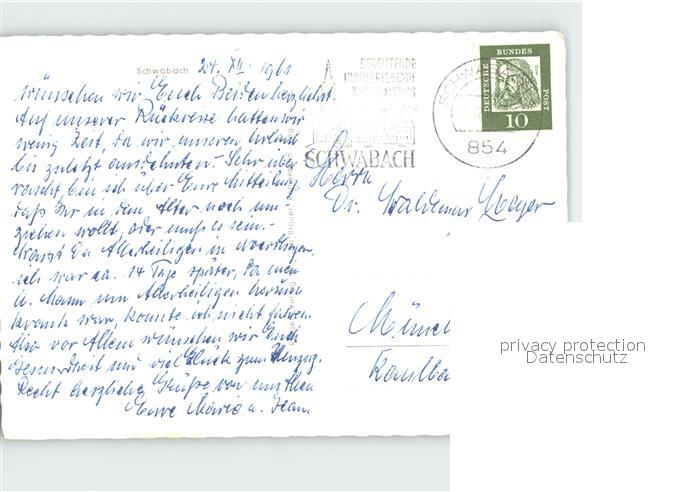 Schwabach
24. XII. 1961
wünschen wir Euch Beiden herzlichst.
Auf unserer Rückreise hatten wir
wenig Zeit, da wir unseren Urlaub
bis zuletzt ausdehnten. Sehr über-
rascht bin ich über Eure Mitteilung,
daß Ihr in dem Alter noch um-
ziehen wollt, oder muß es sein.
Warst Du Allerheiligen in
ich war ca. 14 Tage später, da mein
l. Mann um Allerheiligen herum
krank war, konnte ich nicht fahren.
Also vor Allem wünschen wir Euch
Gesundheit und viel Glück zum Umzug.
Recht herzliche Grüße von uns Allen
Eure Maria u.
BEDEUTENDE
INDUSTRIESTADT
SCHWABACH
854
DEUTSCHE
BUNDES
POST
10
Herrn
Dr. Waldemar
Münc
Kaulba
privacy protection
Datenschutz